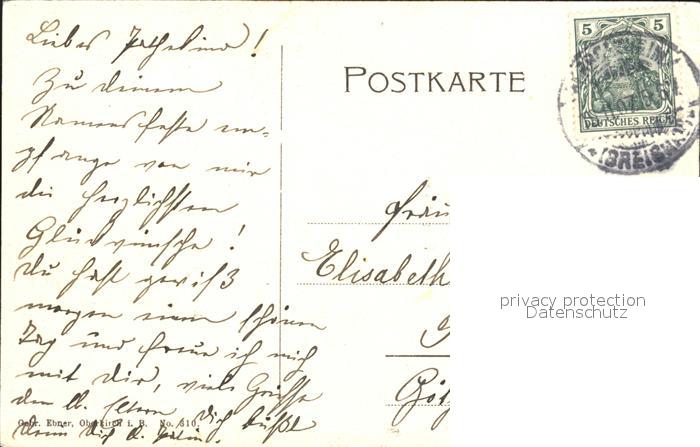 Liebes Pathchen!
Zu deinem
Namensfeste em-
pfange von mir
die herzlichsten
Glückwünsche!
Du hast gewiß
morgen einen schönen
Tag und freue ich mich
mit dir, viele Grüsse
den lb. Eltern, dich küßt
POSTKARTE
5 5
DEUTSCHES REICH
(BREISGAU)
Fräu
Elisabeth
Gebr. Ebner, Oberkirch i. B. No. 310.
privacy protection
Datenschutz